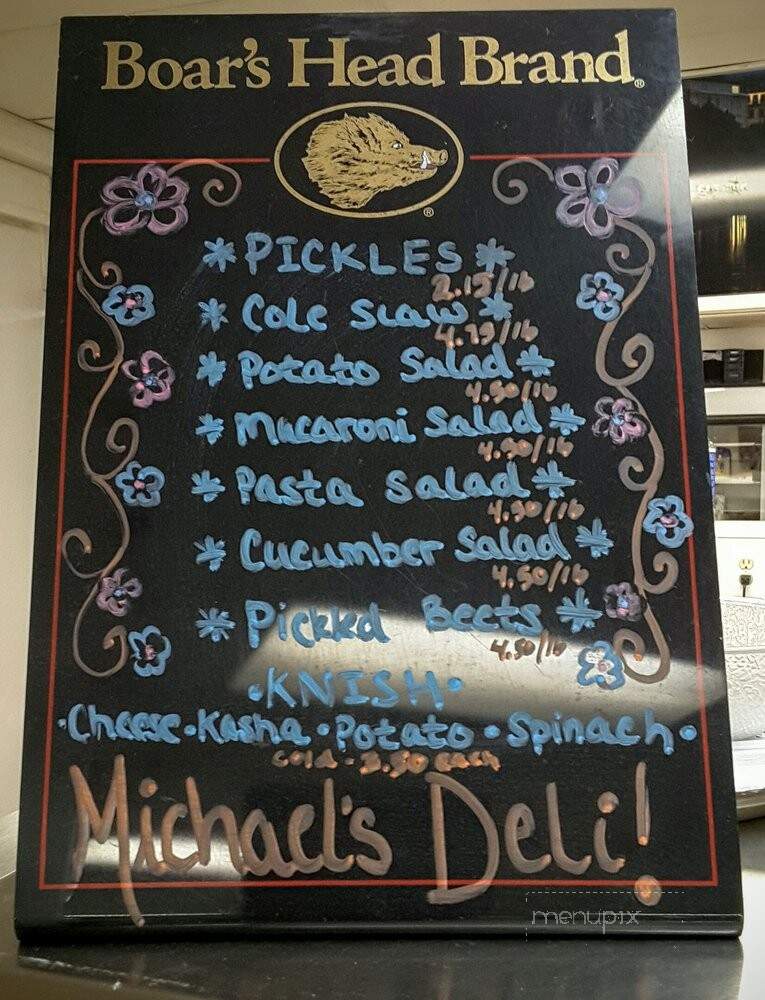 Boar's Head Brand®
®
*PICKLES*
2.15/lb
*Cole Slaw*
4.79/lb
*Potato Salad*
4.50/lb
*Macaroni Salad*
4.50/lb
*Pasta Salad*
4.50/lb
*Cucumber Salad*
4.50/lb
*Pickled Beets*
4.50/lb
•KNISH•
•Cheese•Kasha•Potato•Spinach•
cold - 3.50 each
Michael's Deli!
menupix